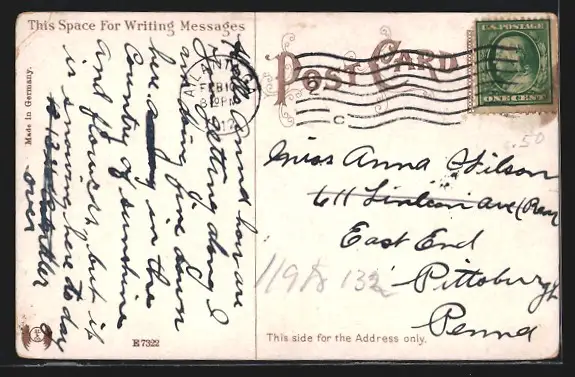 This Space For Writing Messages
Hello Anna how are
you getting along I
am feeling fine down
here in this
Country of sunshine
and flowers but it
is snowing here to day
over
Made in Germany.
E 7322
POST CARD
ATLANTA
FEB 10
8 30 PM
U.S. POSTAGE
ONE CENT
Miss Anna Wilson
611 Lincoln Ave
East End
Pittsburgh
Penna
.50
This side for the Address only.